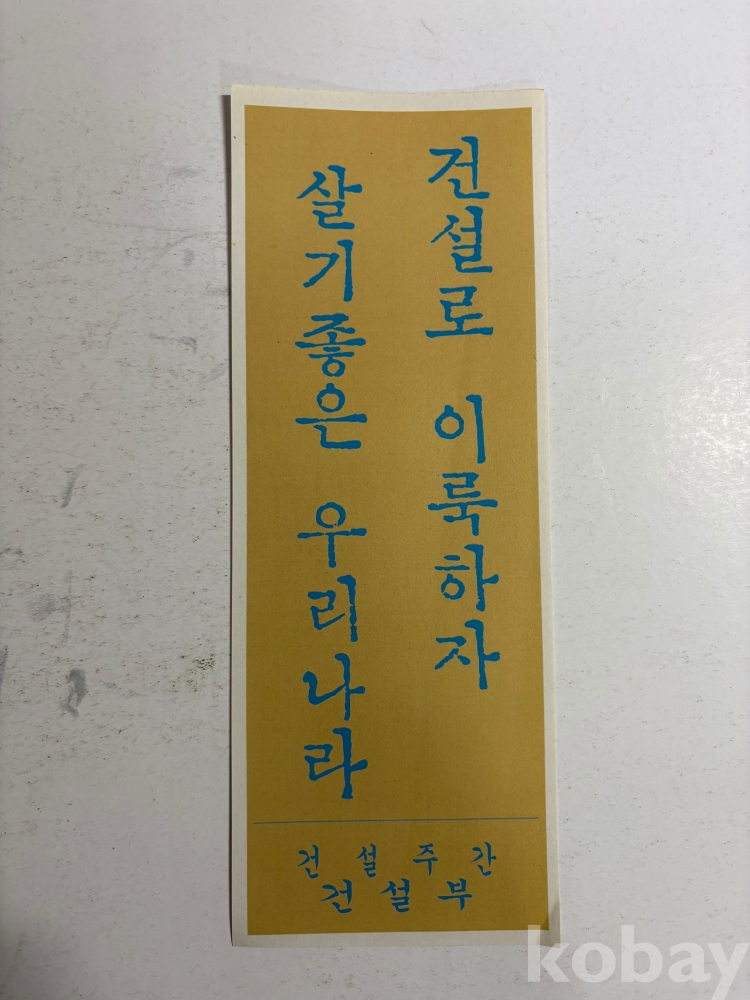 건설로 이룩하자
살기좋은 우리나라
건설주간
건설부
kobay